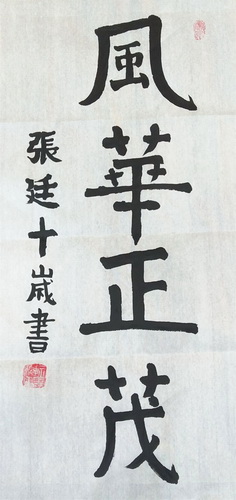 風華正茂
張廷十歲書